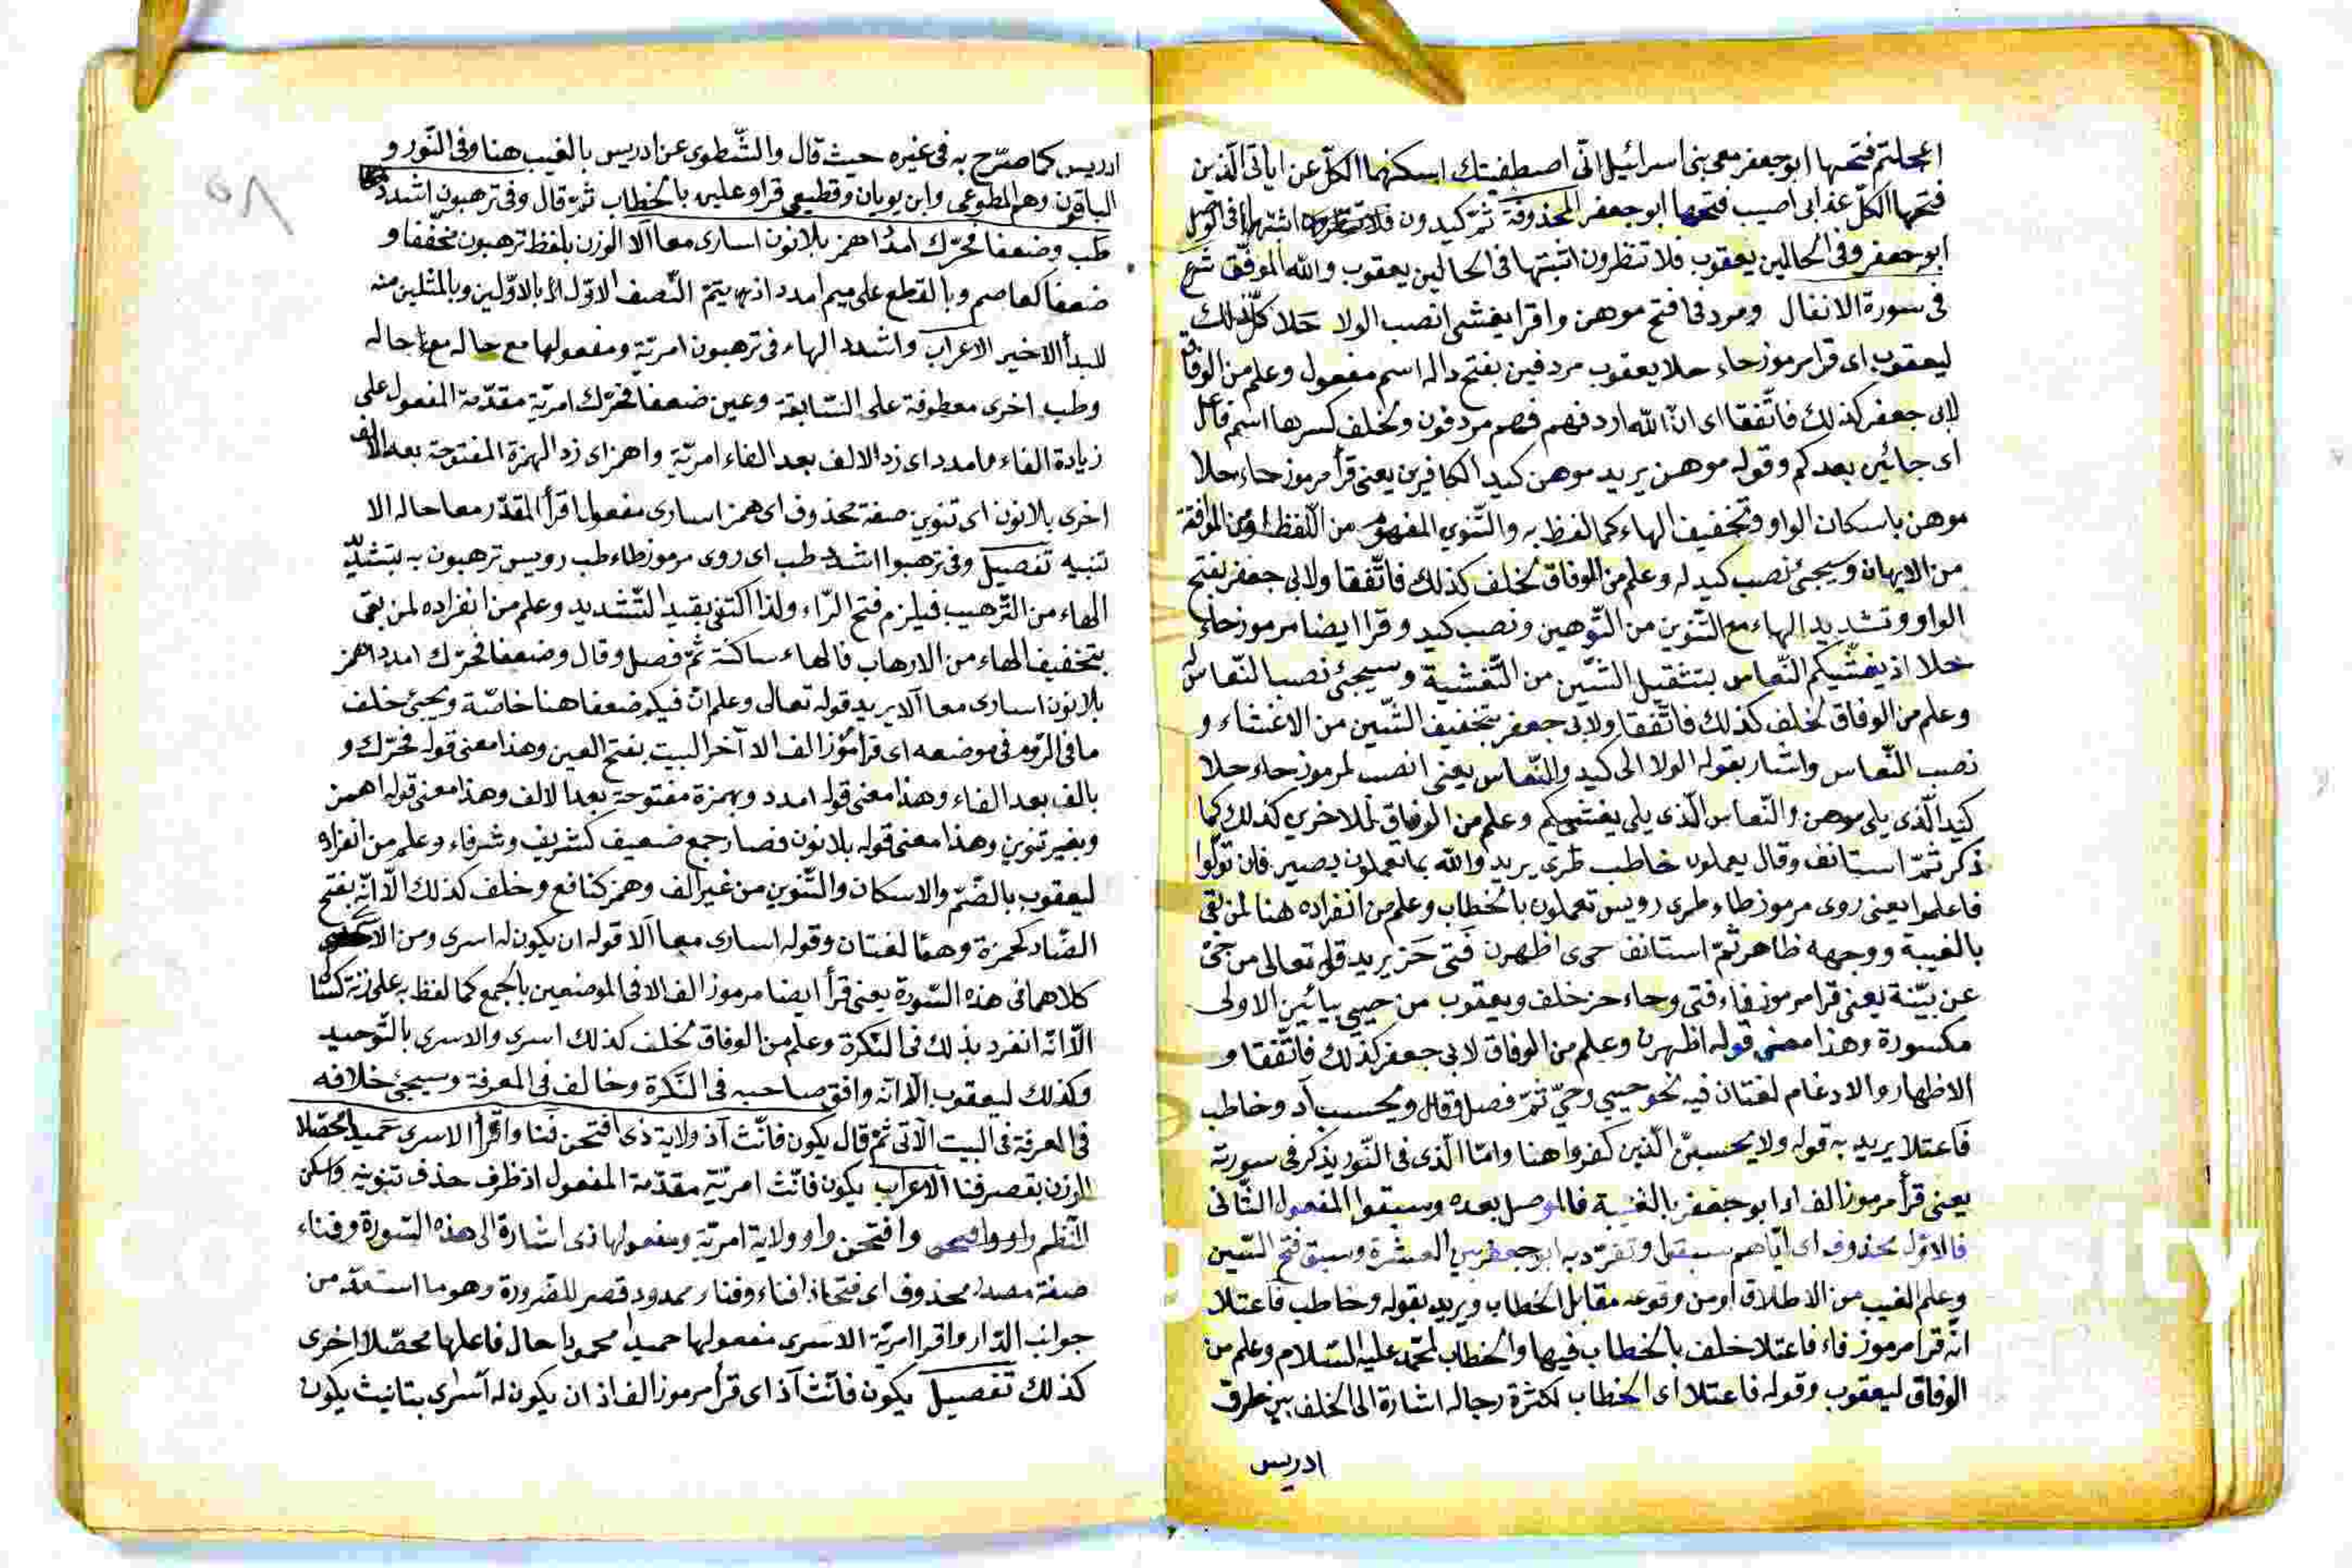 اعجلتم فتحها ابو جعفر معى بنى اسرائيل انى اصطفيتك اسكنهما الكل عن اياتى الذين
فتحها الكل عذابى اصيب فتحها ابو جعفر المحذوفة ثم كيدون فلا اثبتها فى الوصل
ابو جعفر وفى الحالين يعقوب فلا تنظرون اثبتها فى الحالين يعقوب والله الموفق شرع
فى سورة الانفال ومردفى افتح موهن واقرا يغشى انصب الولا حلا كذلك
ليعقوب اى قرا مرموز حاء حلا يعقوب مردفين بفتح داله اسم مفعول وعلم من الوفاق
لابى جعفر كذلك فاتفقا اى ان الله اردفهم فهم مردفون ولخلف كسرها اسم فاعل
اى جائين بعدكم وقوله موهن يريد موهن كيد الكافرين يعنى قرأ مرموز حاء حلا
موهن باسكان الواو وتخفيف الهاء كما لفظ به والتنوين المفهوم من اللفظ
من الايهان وسيجئ نصب كيد له وعلم من الوفاق لخلف كذلك فاتفقا ولابى جعفر بفتح
الواو وتشديد الهاء مع التنوين من التوهين ونصب كيد وقرا ايضا مرموز حاء
حلا اذ يغشيكم النعاس بتثقيل الشين من التغشية وسيجئ نصب النعاس له
وعلم من الوفاق لخلف كذلك فاتفقا ولابى جعفر بتخفيف الشين من الاغشاء و
نصب النعاس واشار بقوله الولا الى كيد والنعاس يعنى انصب لمرموز حاء حلا
كيد الذى يلى موهن والنعاس الذى يلى يغشيكم وعلم من الوفاق للاخرين كذلك كما
ذكر ثم استانف وقال يعملون خاطب طرى يريد والله بما تعملون بصير فان تولوا
فاعلموا يعنى روى مرموز طاء طرى رويس تعملون بالخطاب وعلم من انفراده هنا لمن بقى
بالغيبة ووجهه ظاهر ثم استانف حى اظهرن فتى حز يريد قوله تعالى من حى
عن بينة يعنى قرا مرموز فاء فتى وحاء حز خلف ويعقوب من حيى بيائين الاولى
مكسورة وهذا معنى قوله اظهرن وعلم من الوفاق لابى جعفر كذلك فاتفقا و
الاظهار والادغام لغتان فيه نحو حيى وحى ثم فصل وقال ويحسب آد وخاطب
فاعتلا يريد به قوله ولا يحسبن الذين كفروا هنا واما الذى فى النور يذكر فى سورته
يعنى قرأ مرموز الف اد ابو جعفر بالغيبة فالموصل بعده وسبقوا المفعول الثانى
فالاول محذوف اى اياهم سبقوا وتفرد به ابو جعفر من العشرة وسبق فتح السين
وعلم الغيب من الاطلاق او من وقوعه مقابل الخطاب ويريد بقوله وخاطب فاعتلا
انه قرا مرموز فاء فاعتلا خلف بالخطاب فيها والخطاب لمحمد عليه السلام وعلم من
الوفاق ليعقوب وقوله فاعتلا اى الخطاب لكثرة رجاله اشارة الى الخلف بين طرق
ادريس
ادريس كما صرح به فى غيره حيث قال والشطوى عن ادريس بالغيب هنا وفى النور و
الباقون وهم المطوعى وابن بويان وقطيعى قراو عليه بالخطاب ثم قال وفى ترهبون اشدد
طب وضعفا فحرك امدد اهمز بلا نون اسارى معا آلا الوزن بلفظ ترهبون مخففا و
ضعفا كعاصم وبالقطع على ميم امدد اذ به يتم النصف الاول بالاولين وبالمثلين منه
للبدأ الاخير الاعراب واشدد الهاء فى ترهبون امرية ومفعولها مع حاله
وطب اخرى معطوفة على السابقة وعين ضعفا فحرك امرية مقدمة المفعول على
زيادة الفاء وامدد اى زد الالف بعد الفاء امرية واهمز اى زد الهمزة المفتوحة بعد الالف
اخرى بلا نون اى تنوين صفة محذوف اى همز اسارى مفعول اقرأ المقدر معا حاله الا
تنبيه تفصيل وفى ترهبوا اشدد طب اى روى مرموز طاء طب رويس ترهبون به بتشديد
الهاء من الترهيب فيلزم فتح الراء ولذا اكتفى بقيد التشديد وعلم من انفراده لمن بقى
بتخفيف الهاء من الارهاب فالهاء ساكنة ثم فصل وقال وضعفا فحرك امدد اهمز
بلا نون اسارى معا آلا يريد قوله تعالى وعلم ان فيكم ضعفا هنا خاصة ويجئ خلف
ما فى الروم فى موضعه اى قرا مرموز الف الا آخر البيت بفتح العين وهذا معنى قوله فحرك و
بالف بعد الفاء وهذا معنى قوله امدد وبهمزة مفتوحة بعد الالف وهذا معنى قوله اهمز
وبغير تنوين وهذا معنى قوله بلا نون فصار جمع ضعيف كشريف وشرفاء وعلم من انفراده
ليعقوب بالضم والاسكان والتنوين من غير الف وهمز كنافع وخلف كذلك الا انه بفتح
الضاد كحمزة وهما لغتان وقوله اسارى معا آلا قوله ان يكون له اسرى ومن الاسرى
كلاهما فى هذه السورة يعنى قرأ ايضا مرموز الف الا فى الموضعين بالجمع كما لفظ به على زنة كسالى
الا انه انفرد بذلك فى النكرة وعلم من الوفاق لخلف كذلك اسرى والاسرى بالتوحيد
وكذلك ليعقوب الا انه وافق صاحبه فى النكرة وخالف فى المعرفة وسيجئ خلافه
فى المعرفة فى البيت الآتى ثم قال يكون فانث آذ ولاية ذى افتحن فنا واقرأ الاسرى حميدا محصلا
الوزن بقصر فنا الاعراب يكون فانث امرية مقدمة المفعول اذ ظرف حذف تنوينه واسكن
النظم واو وافتحن وافتحن واو ولاية امرية ومفعولها ذى اشارة الى هذه السورة وفناء
صفة مصدر محذوف اى فتحا ذا فناء وفنا ممدود قصر للضرورة وهو ما استعد من
جوانب الدار واقرا امرية الاسرى مفعولها حميدا محمودا حال فاعلها محصلا اخرى
كذلك تفصيل يكون فانث آذ اى قرأ مرموز الف اذ ان يكون له اسرى بتانيث يكون